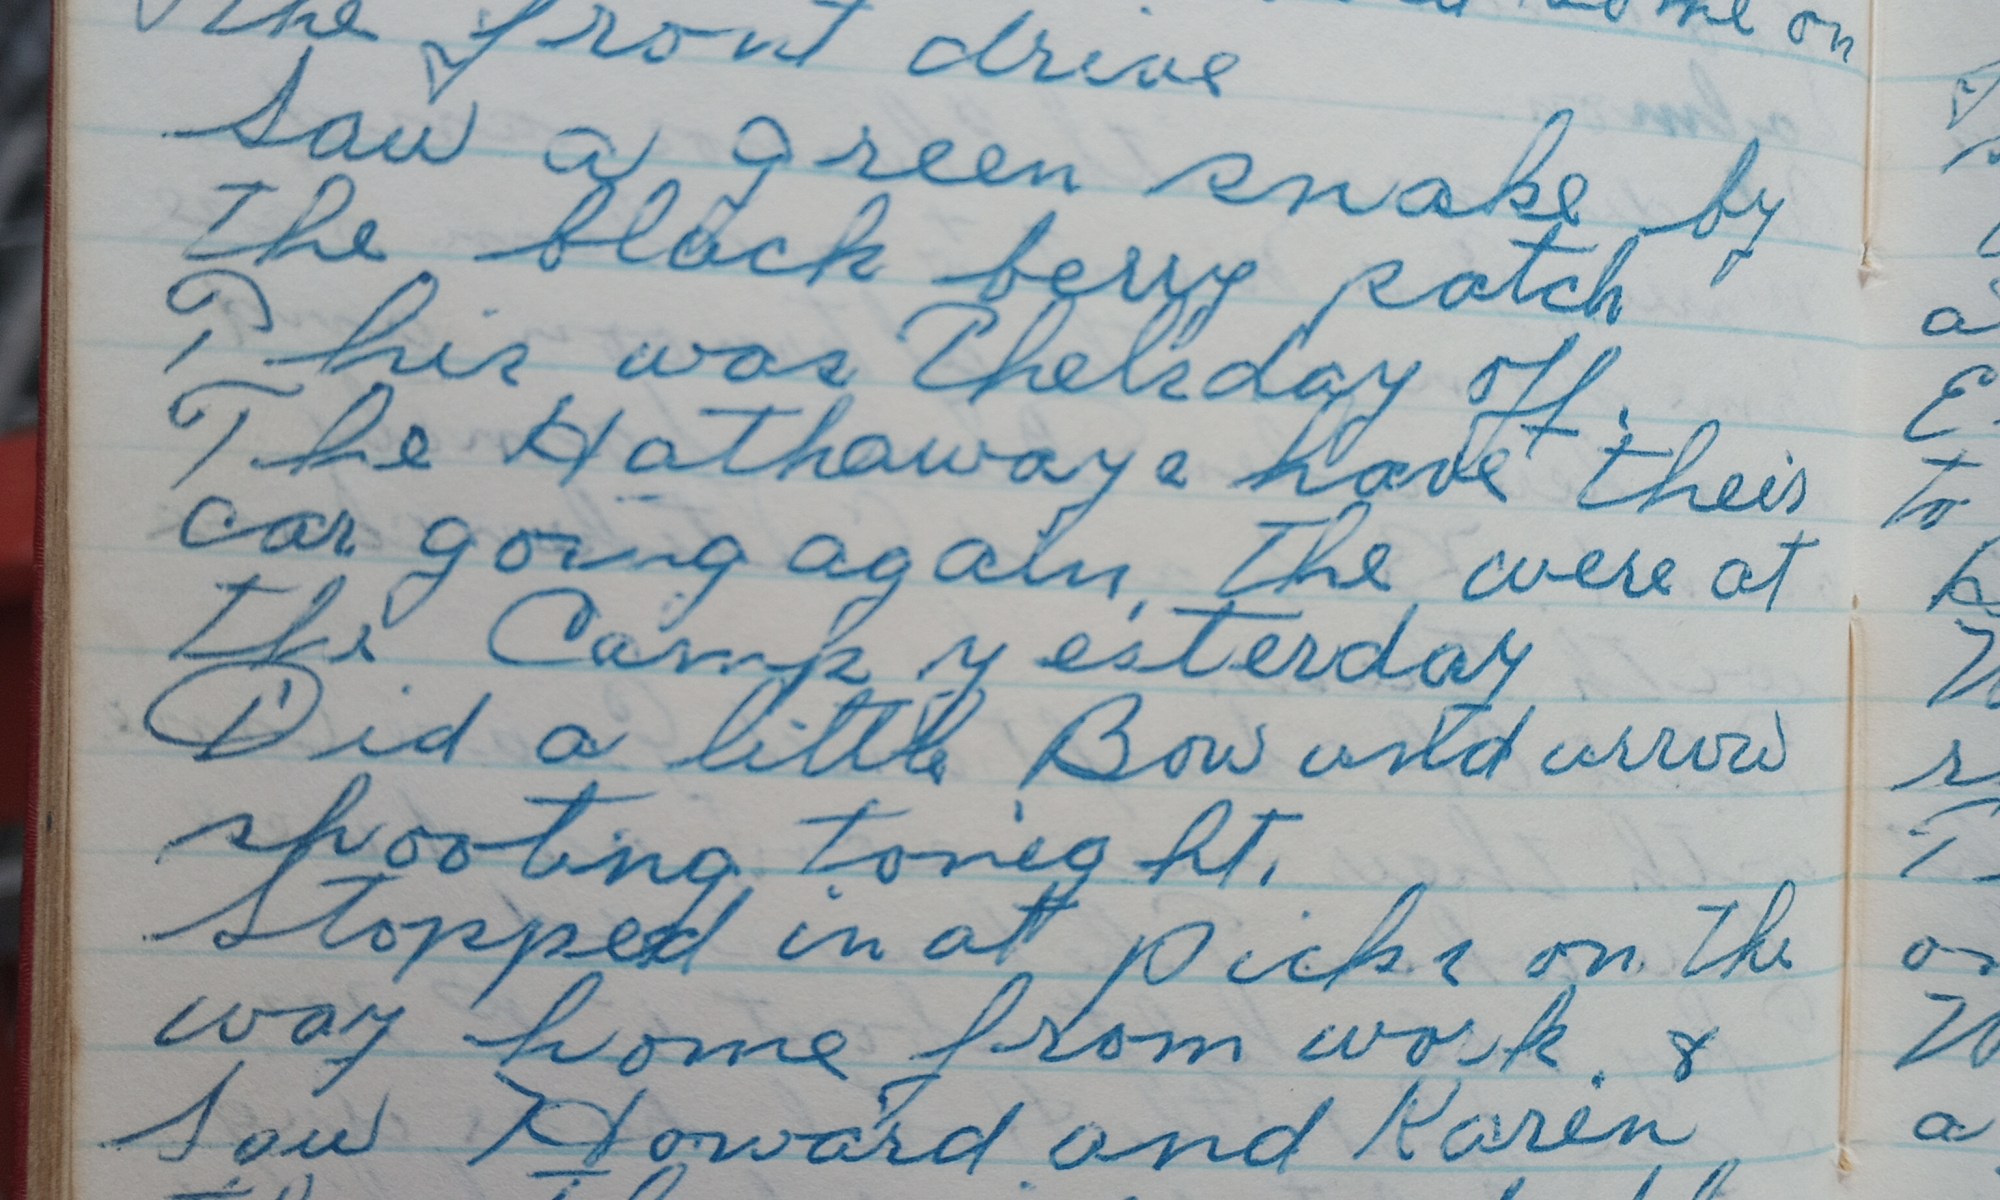 on
the front drive
Saw a green snake by
the black berry patch
This was Thel's day off.
The Hathaways have their
car going again, The were at
the Camp yesterday
Did a little Bow and arrow
shooting tonight.
Stopped in at Dicks on the
way home from work. &
Saw Howard and Karen